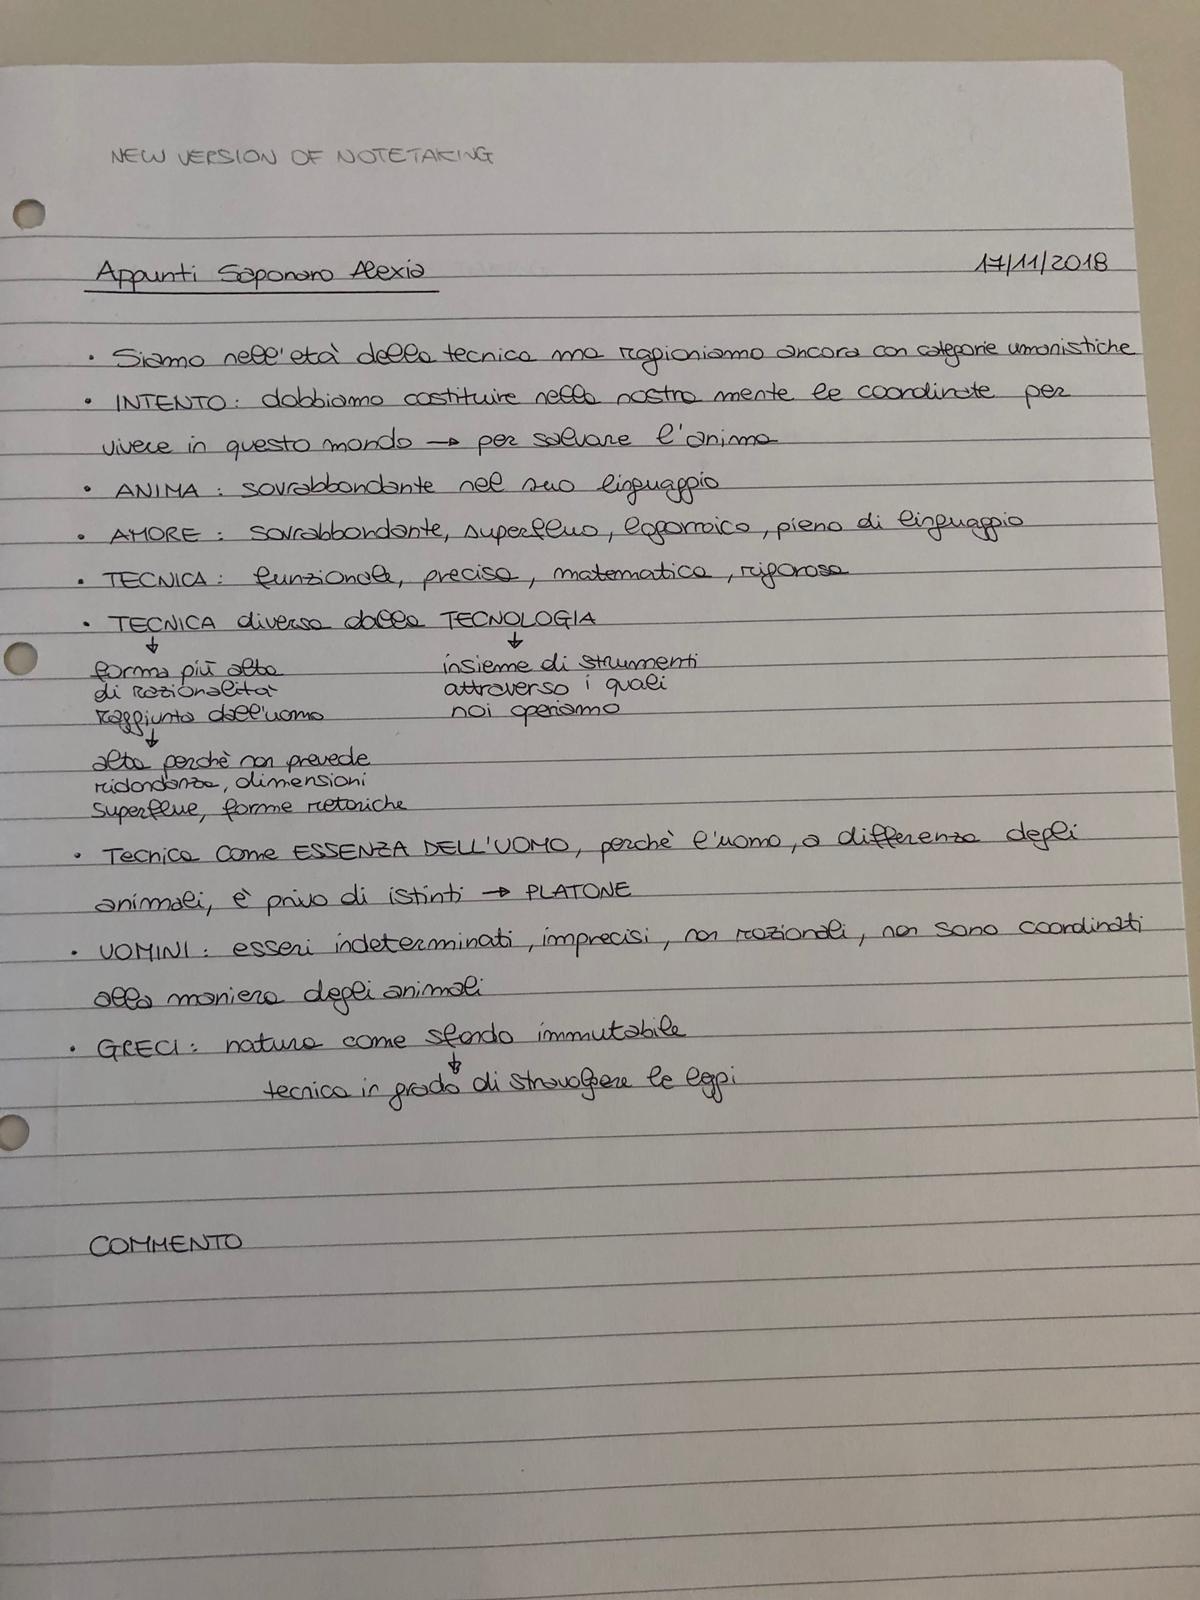 NEW VERSION OF NOTETAKING
Appunti Saponaro Alexia 17/11/2018
• Siamo nell'età della tecnica ma ragioniamo ancora con categorie umanistiche
• INTENTO: dobbiamo costituire nella nostra mente le coordinate per
vivere in questo mondo → per salvare l'anima
• ANIMA: sovrabbondante nel suo linguaggio
• AMORE: sovrabbondante, superfluo, pieno di linguaggio
• TECNICA: funzionale, precisa, matematica, rigorosa
• TECNICA diversa dalla TECNOLOGIA
↓ ↓
forma più alta insieme di strumenti
di razionalità attraverso i quali
raggiunta dall'uomo noi operiamo
↓
alta perchè non prevede
ridondanza, dimensioni
superflue, forme retoriche
• Tecnica come ESSENZA DELL'UOMO, perchè l'uomo, a differenza degli
animali, è privo di istinti → PLATONE
• UOMINI: esseri indeterminati, imprecisi, non razionali, non sono coordinati
alla maniera degli animali
• GRECI: natura come sfondo immutabile
↓
tecnica in grado di stravolgere le leggi
COMMENTO